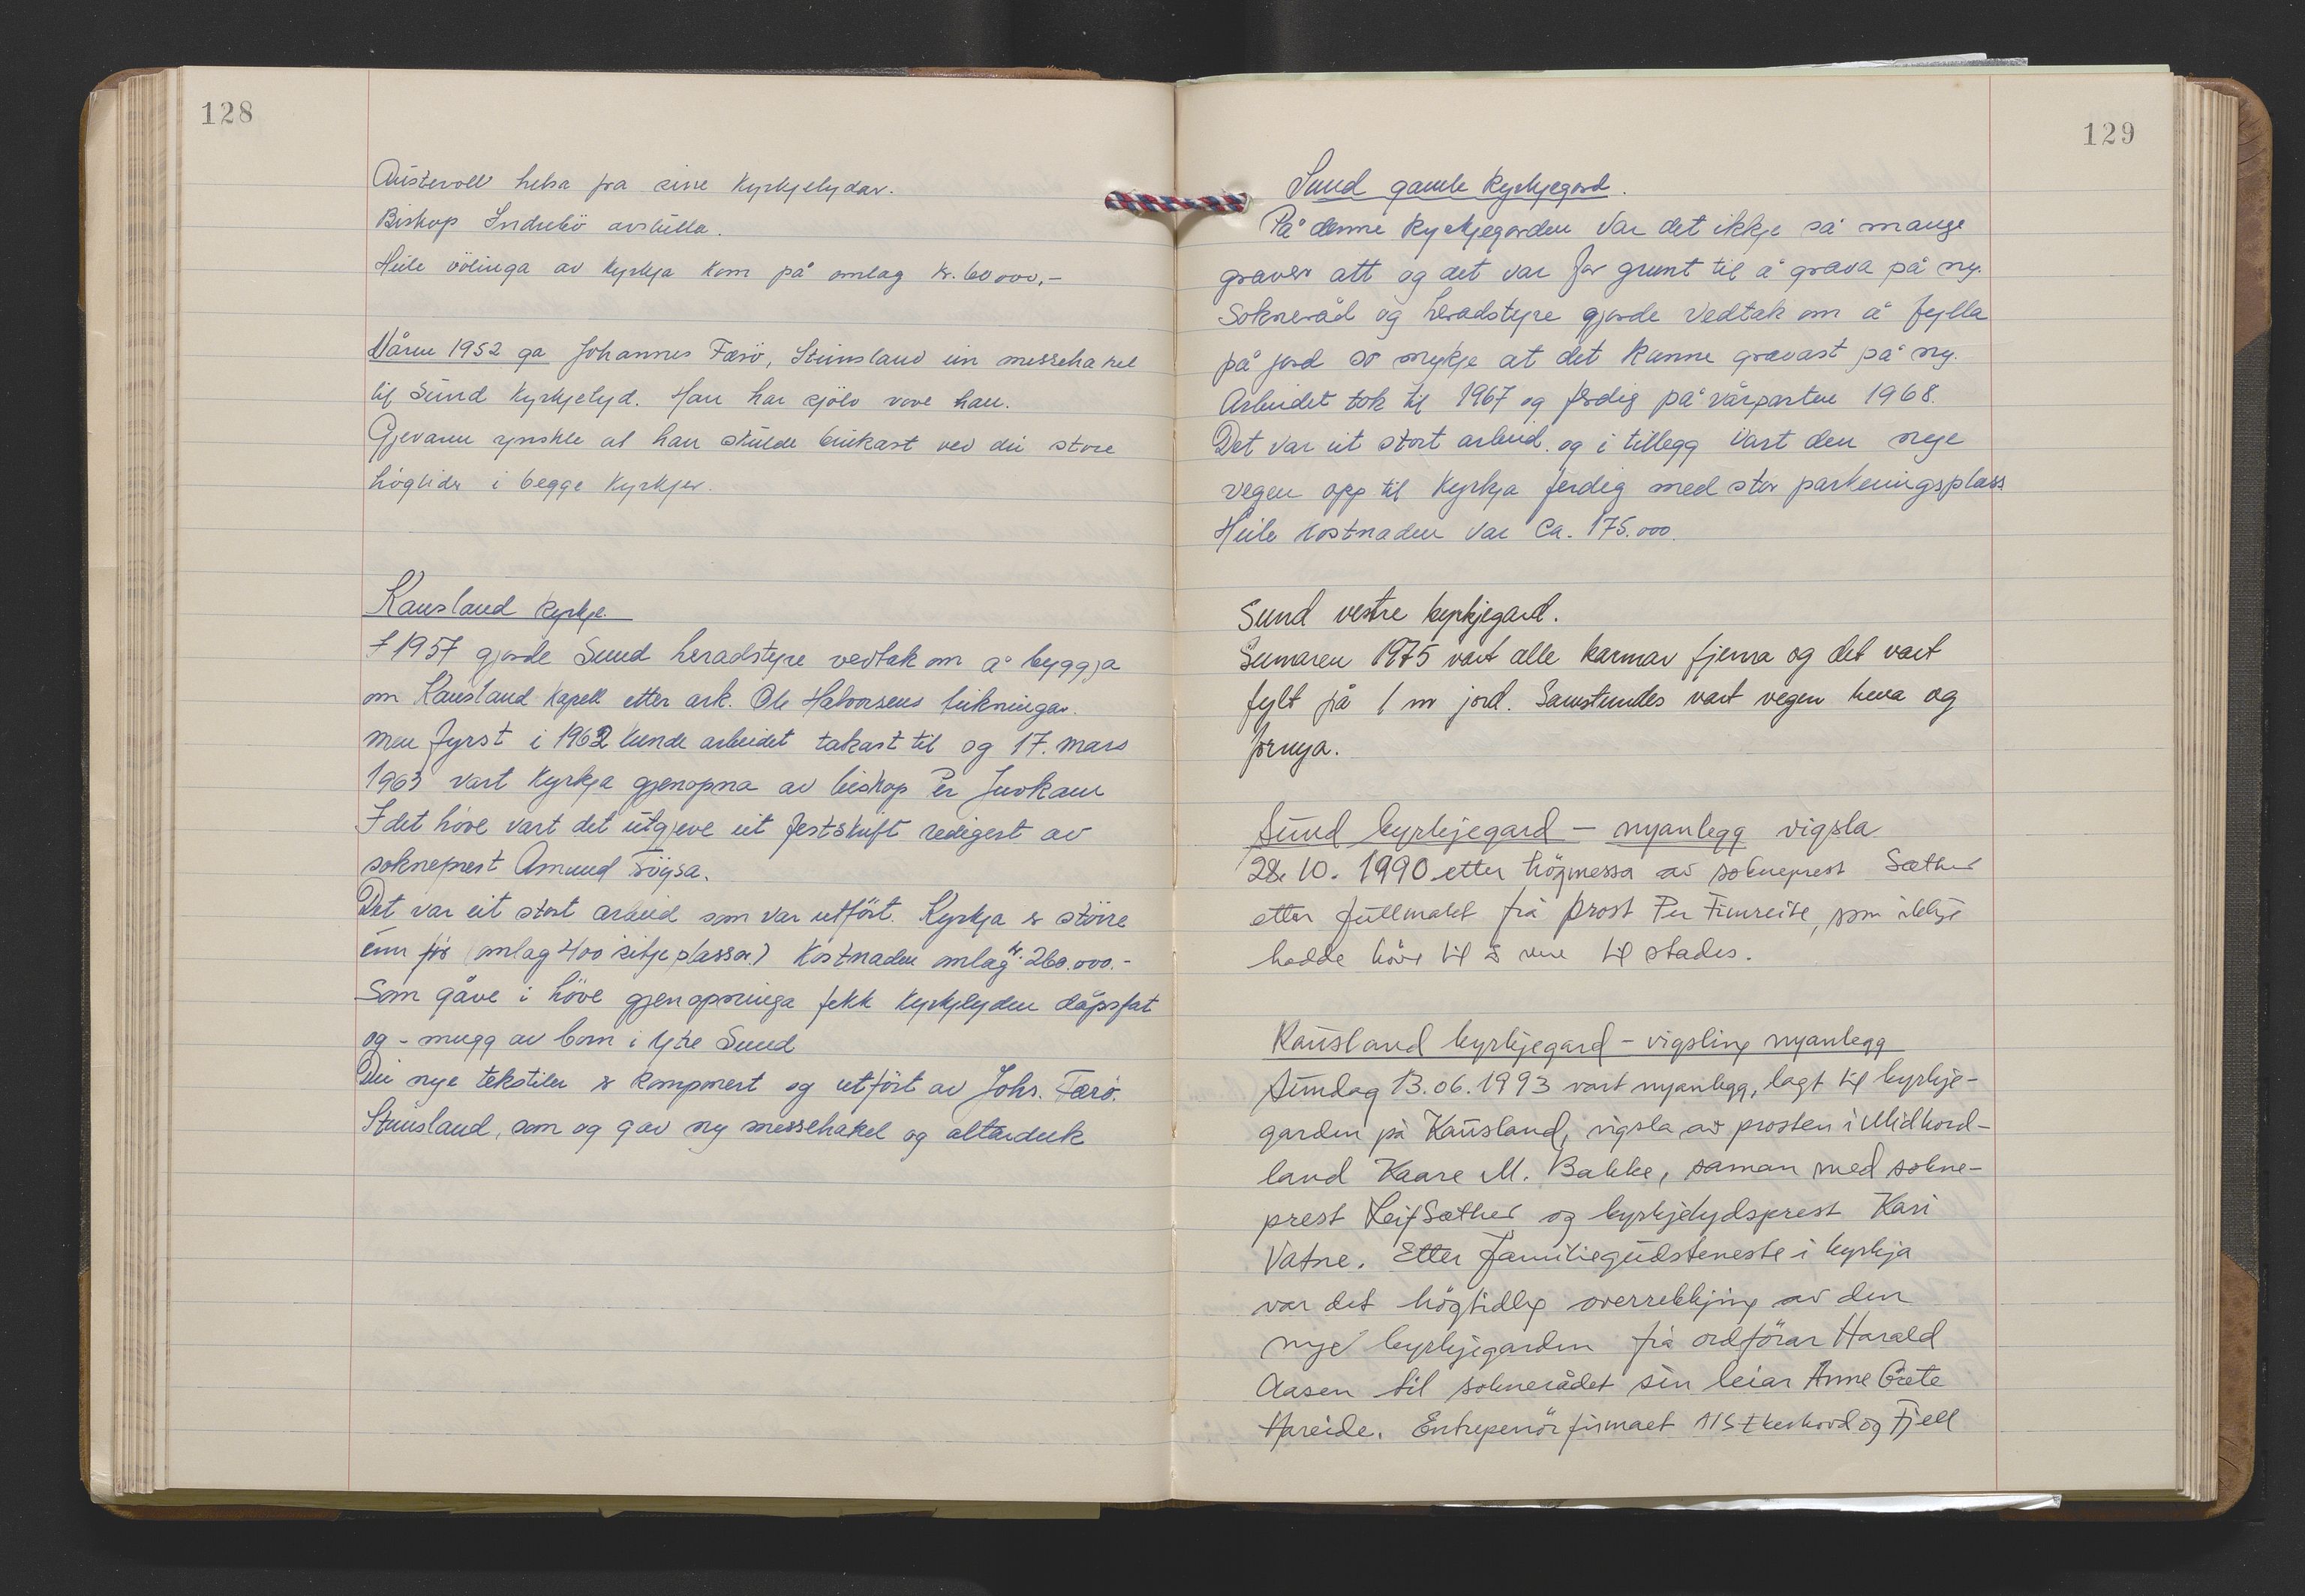 128
Austevoll helsa fra sine kyrkjelydar.
Biskop Indrebö avslutta.
Heile völinga av kyrkja kom på omlag kr. 60000,-
Våren 1952 ga Johannes Færö, Steinsland ein messehakel
til Sund kyrkjelyd. Han har sjölv vove han.
Gjevaren ynskte at han skulde brukast ved dei store
högtider i begge kyrkjer.
Kausland kyrkje.
I 1957 gjorde Sund heradstyre vedtak om å byggja
om Kausland kapell etter ark. Ole Halvorsens teikningar.
men fyrst i 1962 kunde arbeidet takast til og 17. mars
1963 vart kyrkja gjenopna av biskop Per Juvkam
I det höve vart det utgjeve eit festskrift redigert av
sokneprest Amund Fögsa.
Det var eit stort arbeid som var utfört. Kyrkja er större
enn för (omlag 400 sitjeplassar) Kostnaden omlag kr. 260.000.-
Som gåve i höve gjenopninga fekk kyrkjelyden dåpsfat
og - mugg av born i ytre Sund
Dei nye tekstiler er komponert og utfört av Johs. Færö.
Steinsland, som og gav ny messehakel og altarduk
129
Sund gamle kyrkjegard.
På denne kyrkjegarden var det ikkje så mange
graver att og det var for grunt til å grava på ny.
Sokneråd og heradstyre gjorde vedtak om å fylla
på jord so mykje at det kunne gravast på ny.
Arbeidet tok til 1967 og ferdig på vårparten 1968.
Det var eit stort arbeid. og i tillegg vart den nye
vegen opp til kyrkja ferdig med stor parkeringsplass
Heile kostnaden var ca. 175.000.
Sund vestre kyrkjegard.
Sumaren 1975 vart alle karmar fjerna og det vart
fylt på 1 m jord. Samstundes vart vegen heva og
fornya.
Sund kyrkjegard - nyanlegg vigsla
28.10.1990 etter högmessa av sokneprest Sæther
etter fullmakt frå prost Per Fimreite, som ikkje
hadde höve til å vere til stades.
Kausland kyrkjegard - vigsling nyanlegg
Sundag 13.06.1993 vart nyanlegg, lagt til kyrkje-
garden på Kausland, vigsla av prosten i Midhord-
land Kaare M. Bakke, saman med sokne-
prest Leif Sæther og kyrkjelydsprest Kari
Vatne. Etter familiegudsteneste i kyrkja
var det högtidleg overrekkjing av den
nye kyrkjegarden frå ordförar Harald
Aasen til soknerådet sin leiar Anne Grete
Hareide. Entrepenörfirmaet A/S og Fjell